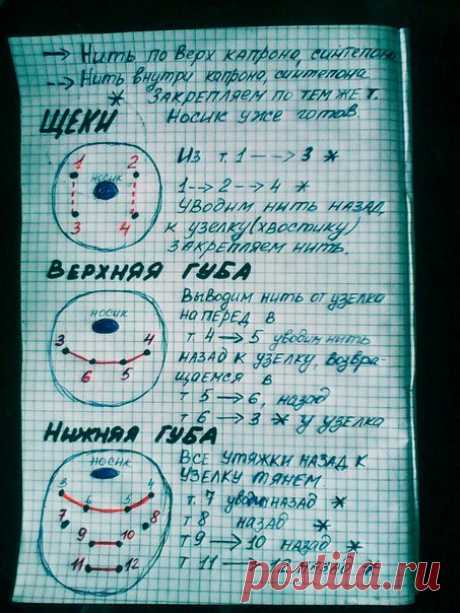 → Нить по верх капрона, синтепона
--> Нить внутри капрона, синтепона
* Закрепляем по тем же т.
ЩЕКИ Носик уже готов.
носик
1 2
3 4
Из т. 1 --> 3 *
1 --> 2 --> 4 *
Уводим нить назад,
к узелку (хвостику)
закрепляем нить.
ВЕРХНЯЯ ГУБА
носик
3 4
6 5
Выводим нить от узелка
на перед в
т. 4 → 5 уводим нить
назад к узелку, возвра-
щаемся в
т 5 → 6, назад
т 6 → 3 * у узелка
НИЖНЯЯ ГУБА
носик
3 4
6 5
7 8
9 10
11 12
Все утяжки назад к
узелку тянем.
т. 7 уводим назад *
т 8 назад *
т 9 → 10 назад *
т 11 → назад *
postila.ru